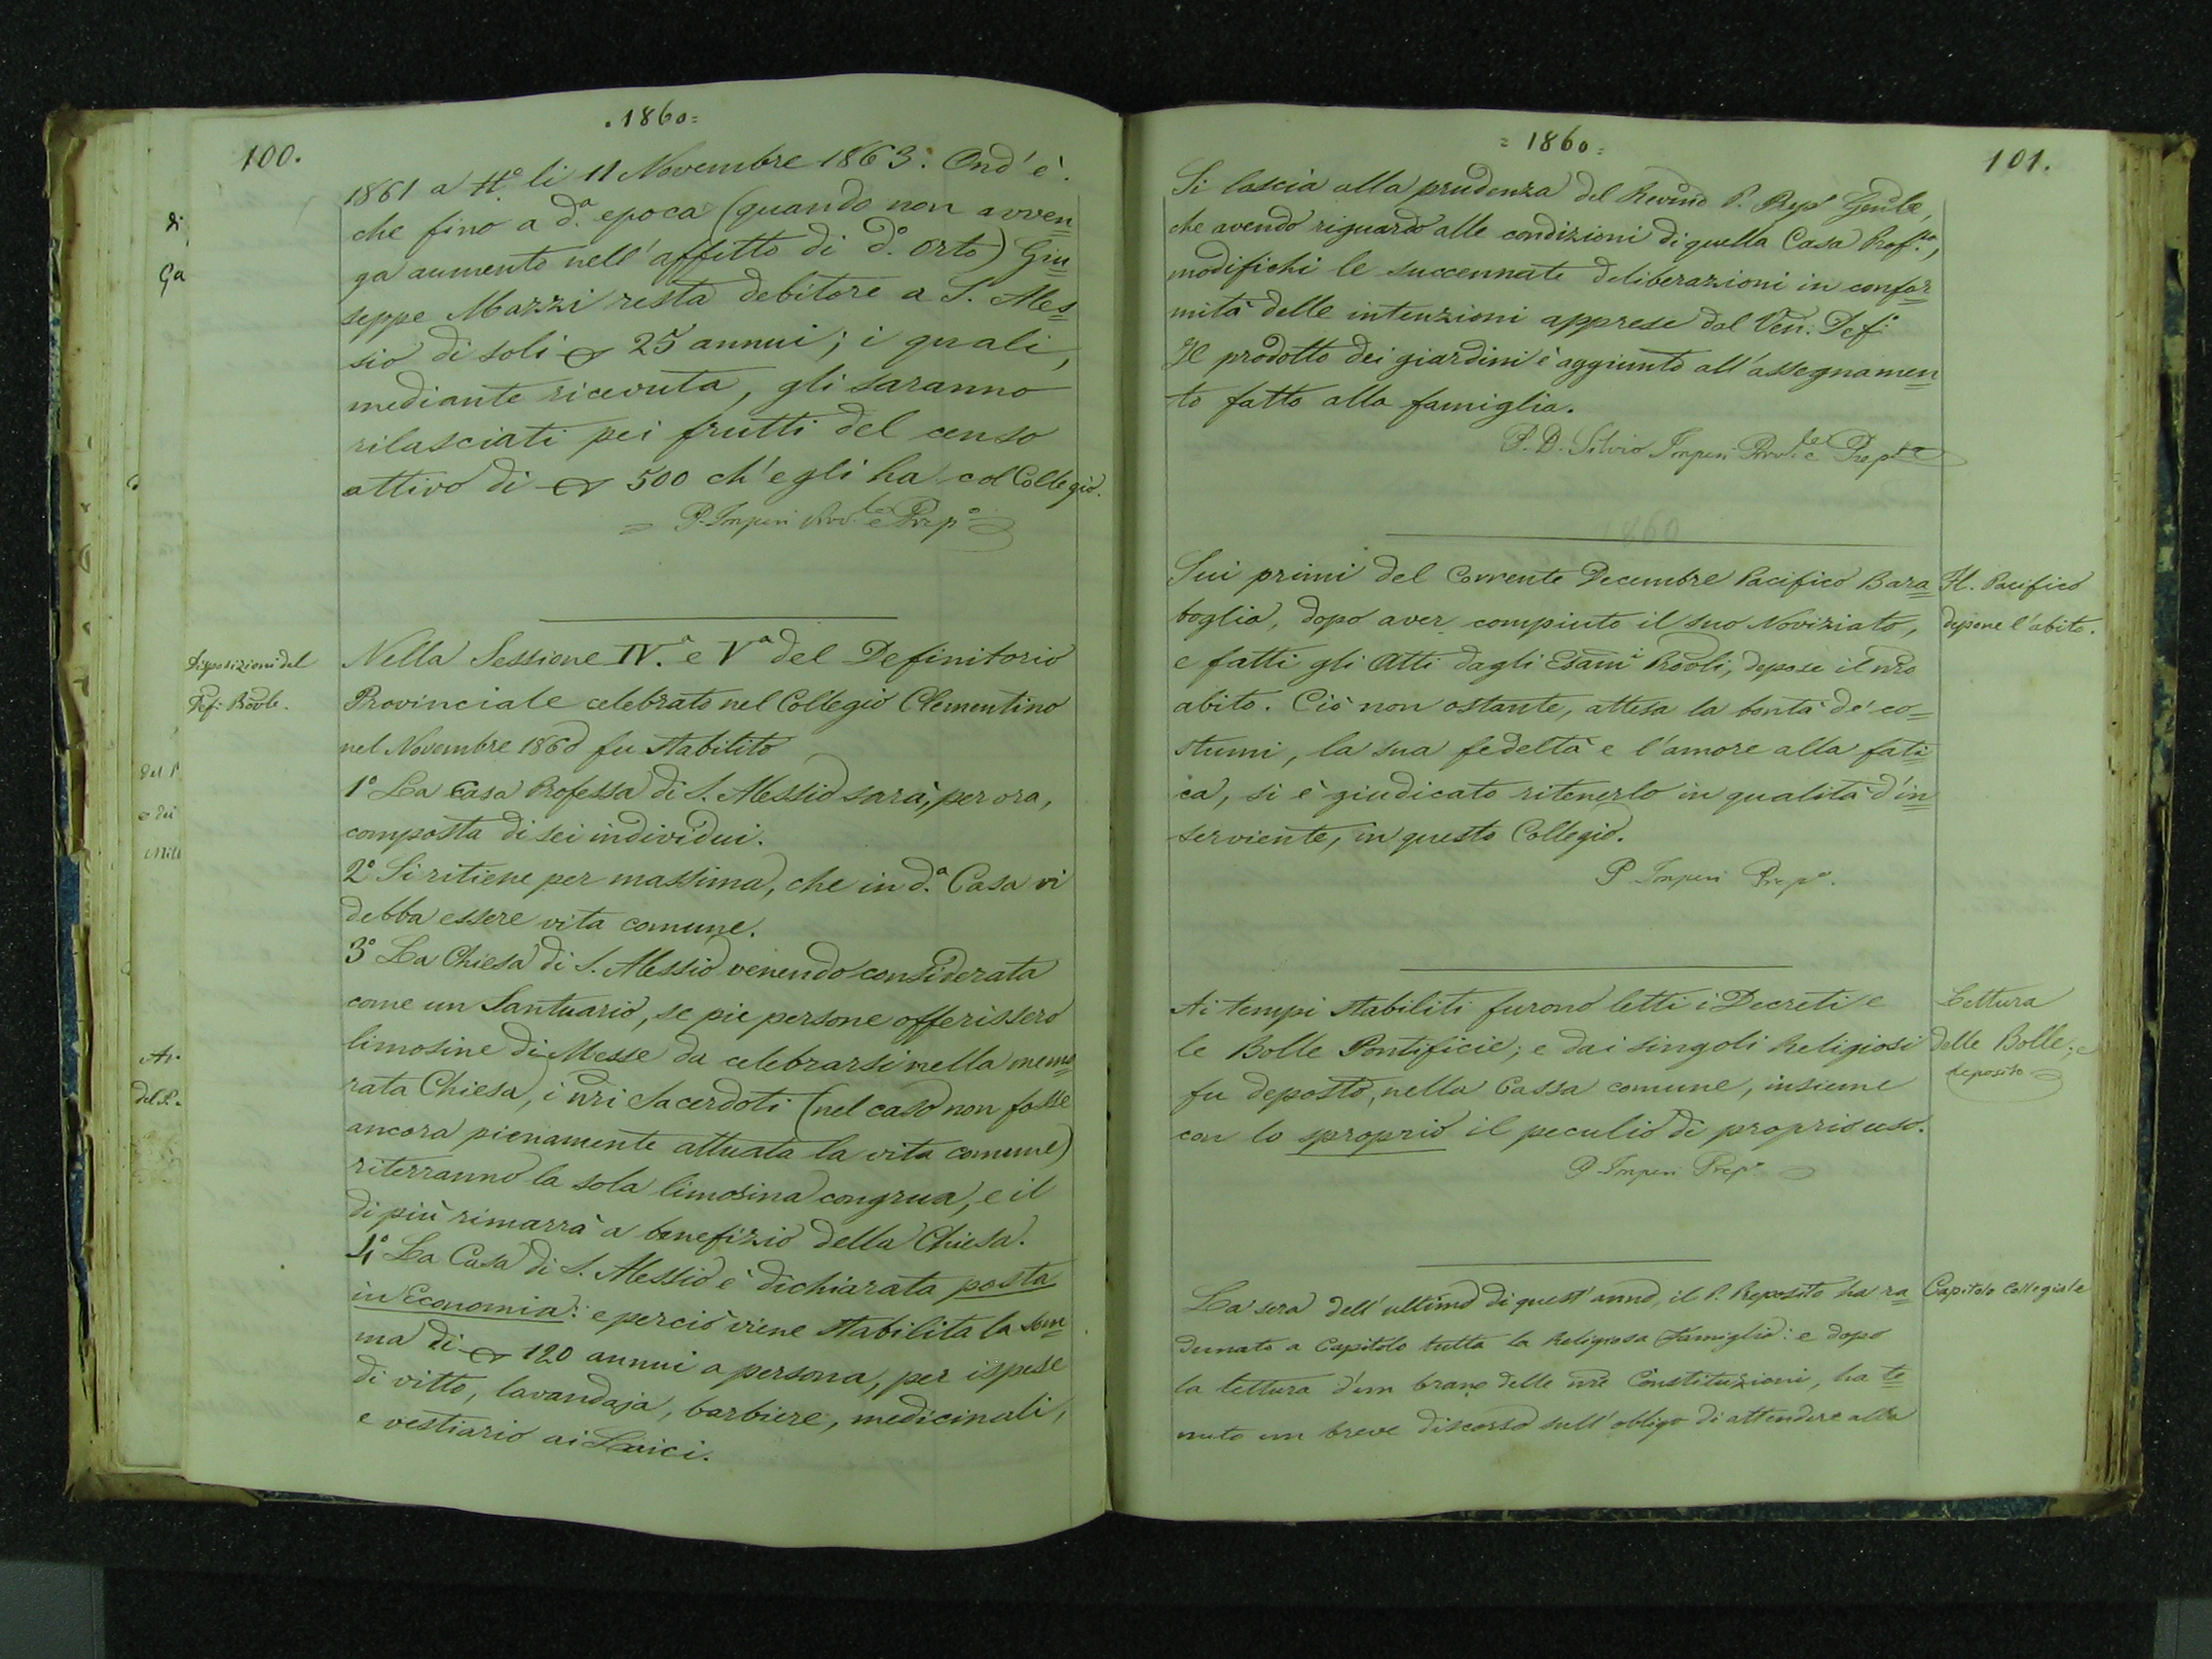 . 1860 =
100.
1861 a tt.° li 11 Novembre 1863. Ond'è
che fino a d.ª epoca (quando non avven=
ga aumento nell'affitto di d.° orto) Giu=
seppe Mazzi resta debitore a S. Ales=
sio di soli 25 annui; i quali,
mediante ricevuta, gli saranno
rilasciati pei frutti del censo
attivo di 500 ch'egli ha col Collegio.
= P. Imperi Prov.le e Prep.°
Disposizioni del
Def. Provle.
Nella Sessione IV.ª e Vª del Definitorio
Provinciale celebrato nel Collegio Clementino
nel Novembre 1860 fu stabilito
1° La Casa Professa di S. Alessio sarà, per ora,
composta di sei individui.
2° Si ritiene per massima, che in d.ª Casa vi
debba essere vita comune.
3° La Chiesa di S. Alessio venendo considerata
come un Santuario, se pie persone offerissero
limosine di Messe da celebrarsi nella memo=
rata Chiesa, i nri Sacerdoti (nel caso non fosse
ancora pienamente attuata la vita comune)
riterranno la sola limosina congrua, e il
di più rimarrà a benefizio della Chiesa.
4° La Casa di S. Alessio è dichiarata posta
in Economia: e perciò viene stabilita la som=
ma di 120 annui a persona, per ispese
di vitto, lavandaja, barbiere, medicinali,
e vestiario ai Laici.
di
Ga
del P
e dei
Ar.
del P.
= 1860 =
101.
Si lascia alla prudenza del Revmo P. Prep.° Genle,
che avendo riguardo alle condizioni di quella Casa Prof.sa,
modifichi le succennate deliberazioni in confor=
mità delle intenzioni apprese dal Ven. Def.
Il prodotto dei giardini è aggiunto all'assegnamen=
to fatto alla famiglia.
P. D. Silvio Imperi Prov.le e Prep.to
Sui primi del Corrente Decembre Pacifico Bara=
boglia, dopo aver compiuto il suo Noviziato,
e fatti gli Atti dagli Esami Provli, depose il nro
abito. Ciò non ostante, attesa la bontà de' co=
stumi, la sua fedeltà e l'amore alla fati=
ca, si è giudicato ritenerlo in qualità d'in=
serviente, in questo Collegio.
P. Imperi Prep.°
H. Pacifico
depone l'abito.
Ai tempi stabiliti furono letti i Decreti e
le Bolle Pontificie; e dai singoli Religiosi
fu deposto, nella Cassa comune, insieme
con lo sproprio il peculio di proprio uso.
P. Imperi Prep.°
Lettura
delle Bolle; e
deposito
La sera dell'ultimo di quest'anno, il P. Preposito ha ra=
dunato a Capitolo tutta la Religiosa Famiglia: e dopo
la lettura d'un brano delle nre Constituzioni, ha te=
nuto un breve discorso sull'obligo di attendere alla
Capitolo Collegiale